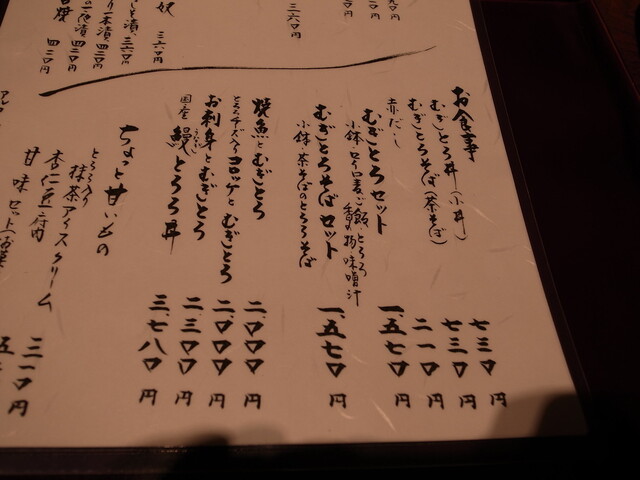 三六〇円
奴 三六〇円
一本漬 四三〇円
四三〇円
四三〇円
お食事
むぎとろ丼(小丼) 七三〇円
むぎとろそば(茶そば) 七三〇円
赤だし 二一〇円
むぎとろセット 一、五七〇円
小鉢・とろろ・麦ご飯・とろろ
香の物・味噌汁
むぎとろそばセット 一、五七〇円
小鉢・茶そばのとろろそば
焼魚とむぎとろ 二、〇〇〇円
とろろチーズ入りコロッケとむぎとろ 二、〇〇〇円
お刺身とむぎとろ 二、三〇〇円
国産鰻とろろ丼 三、七八〇円
ちょっと甘いもの
とろろ入り抹茶アイスクリーム 三一〇円
杏仁豆腐
甘味セット